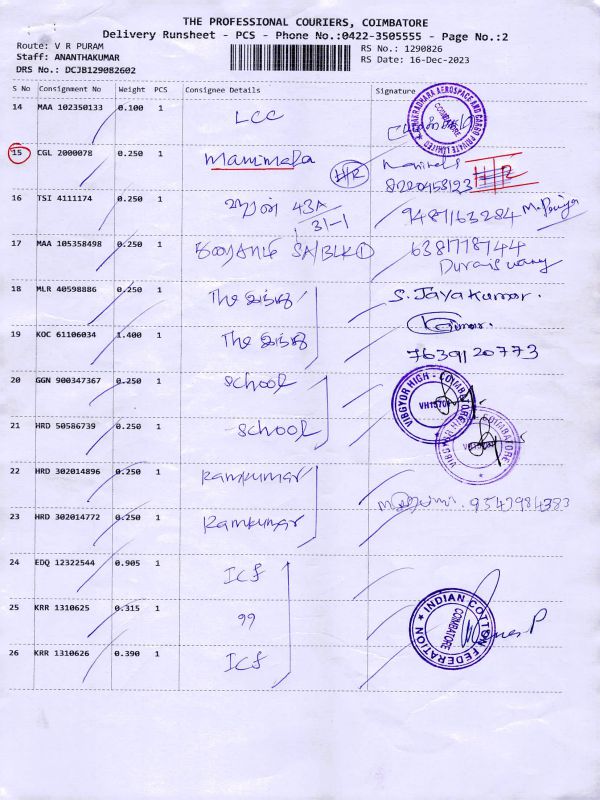 THE PROFESSIONAL COURIERS, COIMBATORE
Delivery Runsheet - PCS - Phone No.:0422-3505555 - Page No.:2
Route: V R PURAM
RS No.: 1290826
Staff: ANANTHAKUMAR
RS Date: 16-Dec-2023
DRS No.: DCJB129082602
S No Consignment No Weight PCS Consignee Details Signature
14 MAA 102350133 0.100 1 LCC
15 CGL 2000078 0.250 1 Manimala H/R
8220458123 H/R
16 TSI 4111174 0.250 1 43A
31-1
9487163284
17 MAA 105358498 0.250 1 5A/BLK 1 6381778744
18 MLR 40598886 0.250 1 The இந்து S. Jayakumar.
19 KOC 61106034 1.400 1 The இந்து Kumar.
7639120773
20 GGN 900347367 0.250 1 School VIBGYOR HIGH - COIMBATORE
21 HRD 50586739 0.250 1 School VIBGYOR HIGH - COIMBATORE
22 HRD 302014896 0.250 1 Ramkumar
23 HRD 302014772 0.250 1 Ramkumar
24 EDQ 12322544 0.905 1 Icf
25 KRR 1310625 0.315 1 99 INDIAN COTTON FEDERATION
COIMBATORE
26 KRR 1310626 0.390 1 Icf